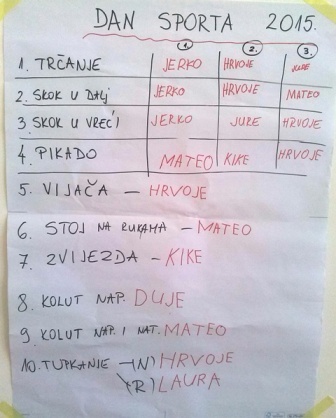 DAN SPORTA 2015.
1. 2. 3.
1. TRČANJE JERKO HRVOJE JURE
2. SKOK U DALJ JERKO HRVOJE MATEO
3 SKOK U VREĆI JERKO JURE HRVOJE
4. PIKADO MATEO KIKE HRVOJE
5. VIJAČA – HRVOJE
6. STOJ NA RUKAMA – MATEO
7. ZVIJEZDA – KIKE
8. KOLUT NAP. DUJE
9 KOLUT NAP. I NAT. MATEO
10. TUPKANJE –(N) HRVOJE
(R) LAURA